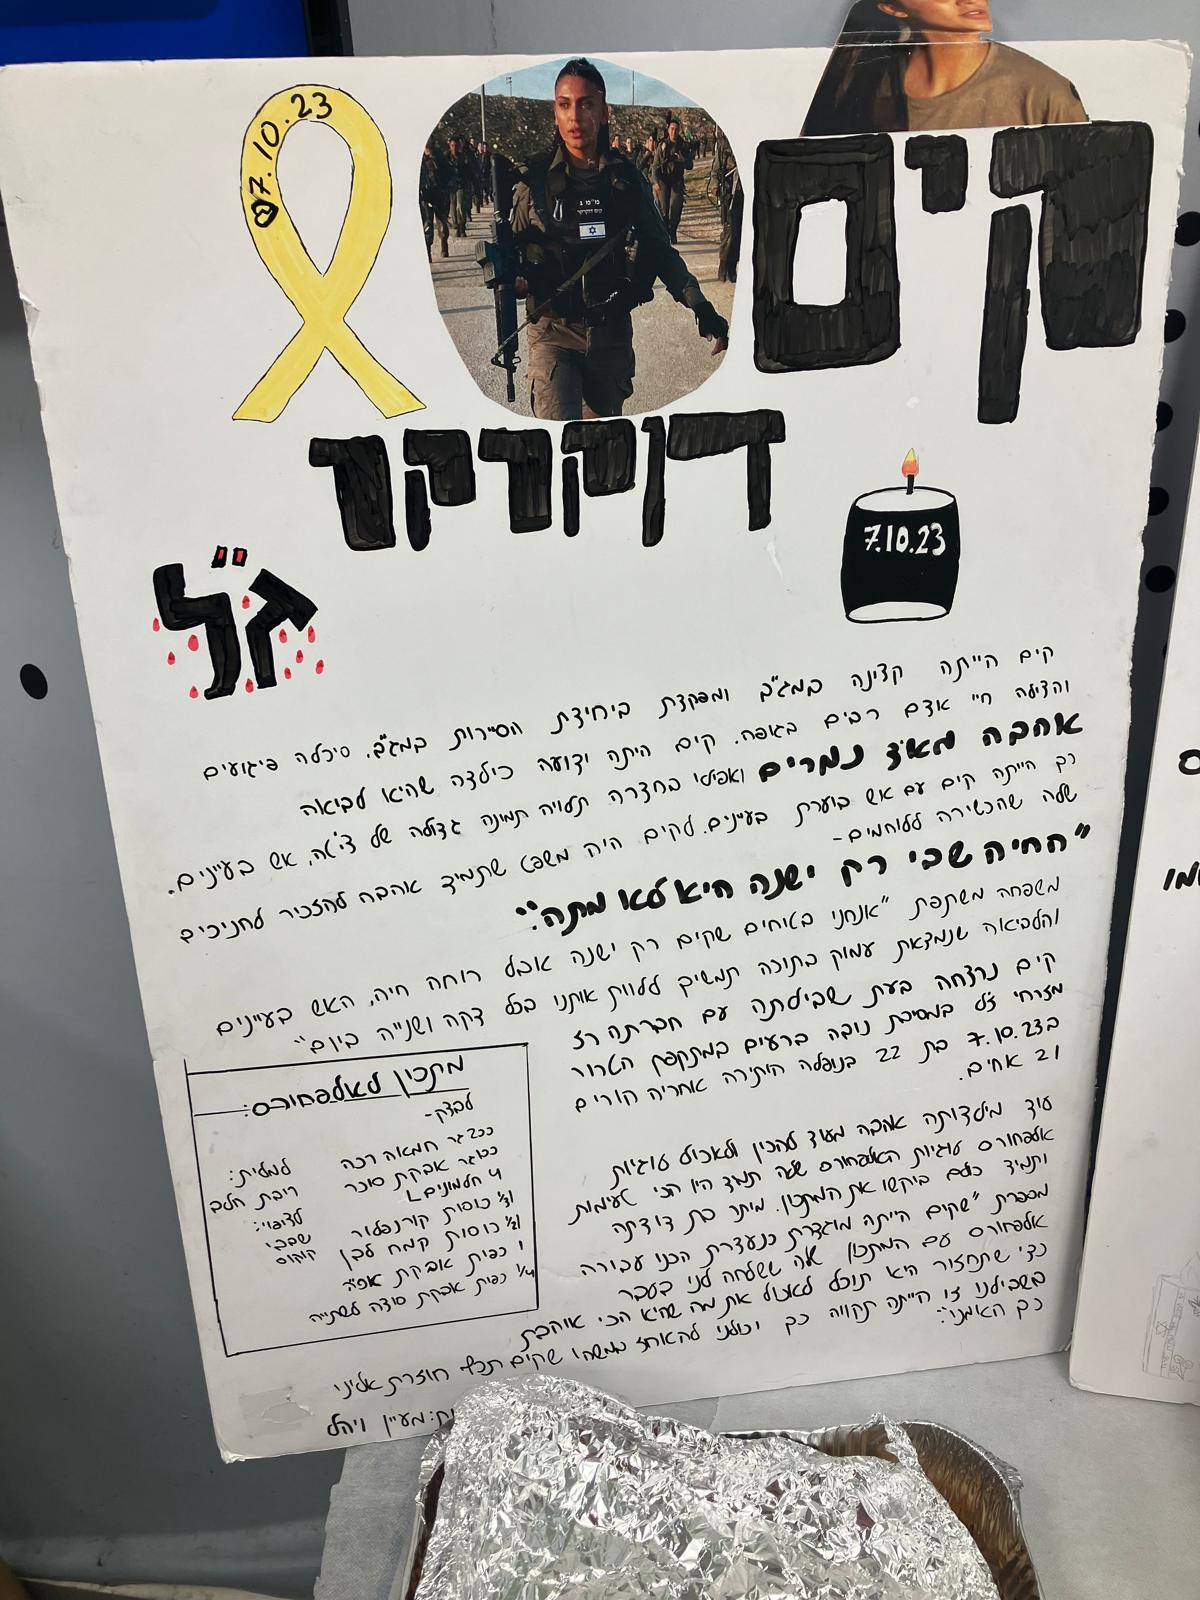 07.10.23
מ"מ 2
קים דוקרקר
קים
דוקרקר
7.10.23
ז"ל
קים הייתה קצינה במג"ב ומפקדת ביחידת הסיירות במג"ב. סיכלה פיגועים
והצילה חיי אדם רבים בגופה. קים היתה ידועה כילדה שהיא לביאה
אהבה מאוד נמרים ואפילו בחדרה תלויה תמונה גדולה של צ'יטה, אש בעיניים.
כך הייתה קים עם אש בוערת בעיניים. לקים היה משפט שתמיד אהבה להזכיר לחניכים
שלה שהכשירה ללוחמים-
"החיה שבי רק ישנה היא לא מתה"
משפחה משתפת "אנחנו בטוחים שקים רק ישנה אבל רוחה חיה, האש בעיניים
והלביאה שנמצאת עמוק בתוכה תמשיך ללוות אותנו בכל דקה ושנייה ביום"
קים נרצחה בעת שבילתה עם חברתה רז
מזרחי ז"ל במסיבת נובה ברעים במתקפת הטרור
ב7.10.23 בת 22 בנופלה הותירה אחריה הורים
ו2 אחים.
עוד מילדותה אהבה מאוד להכין ולאכול עוגיות
אלפחורס עוגיות האלפחורס שלה תמיד היו הכי טעימות
ותמיד כולם ביקשו את המתכון. מיתר בת דודתה
מספרת "שקים הייתה מוגדרת כנעדרת הכנו עבורה
אלפחורס עם המתכון שלה ששלחה לנו בעבר
כדי שתחזור היא תוכל לאכול את מה שהיא הכי אוהבת
בשבילנו זו הייתה תקווה כך יכולנו להאחז במשהו שקים תכף חוזרת אלינו
כך האמנו"
מתכון לאלפחורס:
לבצק-
200 גר חמאה רכה
100 גר אבקת סוכר
4 חלמונים L
1/3 כוסות קורנפלור
1/2 כוסות קמח לבן
1 כפית אבקת אפיה
1/4 כפית אבקת סודה לשתייה
למלית:
ריבת חלב
לציפוי:
שבבי
קוקוס
מעיין ויהלי